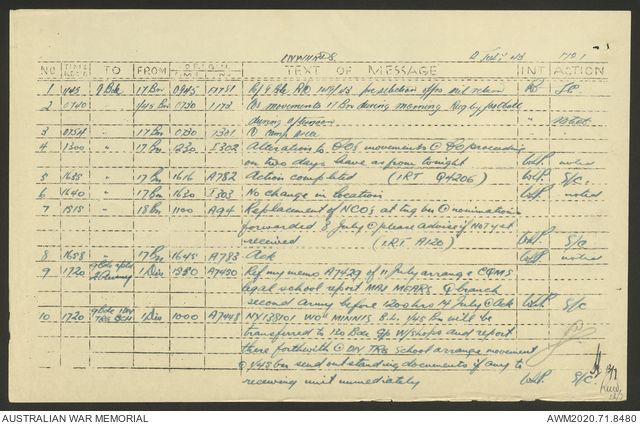 INWARDS. 12 July 43 No 1
NO TIME RECD TO FROM ORIGIN TIME NO TEXT OF MESSAGE INT ACTION
1 1145 9 Bde 17 Bn 0945 nil return S/C.
2 0740 " 1/45 Bn 0730 1173 COs movements 11 Bn during morning Rugby football
during afternoon noted
3 0754 " 17 Bn 0730 I301 @ Camp area
4 1300 " 17 Bn 1230 I302 Alteration to COs movements @ CO proceeding
on two days leave as from tonight noted
5 1635 " 17 Bn 1616 A782 Action completed (IRT Q4206) S/C.
6 1640 " 17 Bn 1630 I303 No change in location noted
7 1515 " 18 Bn 1100 A94 Replacement of NCO's at trg bn @ nomination
forwarded 8 July @ please advise if NOT yet
received (IRT A120) S/C
8 1658 " 17 Bn 1645 A783 Ack noted
9 1720 9 Bde 2 Army 1 Div 1350 A7450 Ref my memo A7429 of 11 July arrange CQMS
legal school report MAJ MEARS Q branch
second Army before 1200 hrs 14 July @ Ack S/C
10 1720 9 Bde 1 DIV TRG SCH 1 Div 1000 A7448 NX138101 WO MINNIS B.L. 1/45 Bn will be
transferred to 120 Bde Gp W/shops and report
there forthwith @ DIV TRG School arrange movement
@ 1/45 bn send outstanding documents if any to
receiving unit immediately S/C
AUSTRALIAN WAR MEMORIAL AWM2020.71.8480